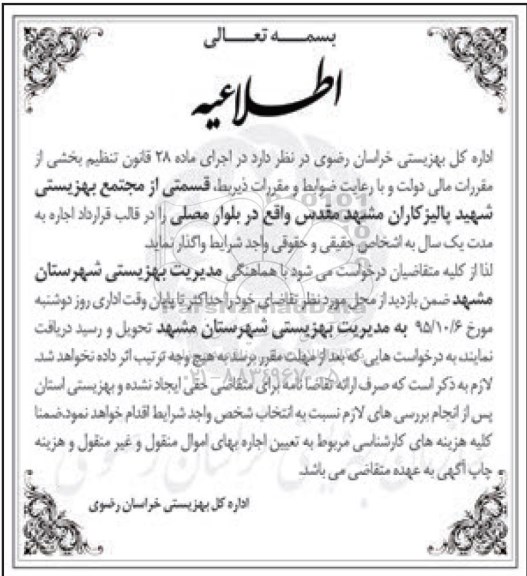 بسمـــه تعـــالی
اطلاعیه
اداره کل بهزیستی خراسان رضوی در نظر دارد در اجرای ماده ۲۸ قانون تنظیم بخشی از
مقررات مالی دولت و با رعایت ضوابط و مقررات ذیربط، قسمتی از مجتمع بهزیستی
شهید پالیزکاران مشهد مقدس واقع در بلوار مصلی را در قالب قرارداد اجاره به
مدت یک سال به اشخاص حقیقی و حقوقی واجد شرایط واگذار نماید.
لذا از کلیه متقاضیان درخواست می شود با هماهنگی مدیریت بهزیستی شهرستان
مشهد ضمن بازدید از محل مورد نظر تقاضای خود را حداکثر تا پایان وقت اداری روز دوشنبه
مورخ ۹۵/۱۰/۶ به مدیریت بهزیستی شهرستان مشهد تحویل و رسید دریافت
نمایند، به درخواست هایی که بعد از مهلت مقرر برسد به هیچ وجه ترتیب اثر داده نخواهد شد.
لازم به ذکر است که صرف ارائه تقاضا نامه برای متقاضی حقی ایجاد نشده و بهزیستی استان
پس از انجام بررسی های لازم نسبت به انتخاب شخص واجد شرایط اقدام خواهد نمود.ضمنا
کلیه هزینه های کارشناسی مربوط به تعیین اجاره بهای اموال منقول و غیر منقول و هزینه
چاپ آگهی به عهده متقاضی می باشد.
اداره کل بهزیستی خراسان رضوی